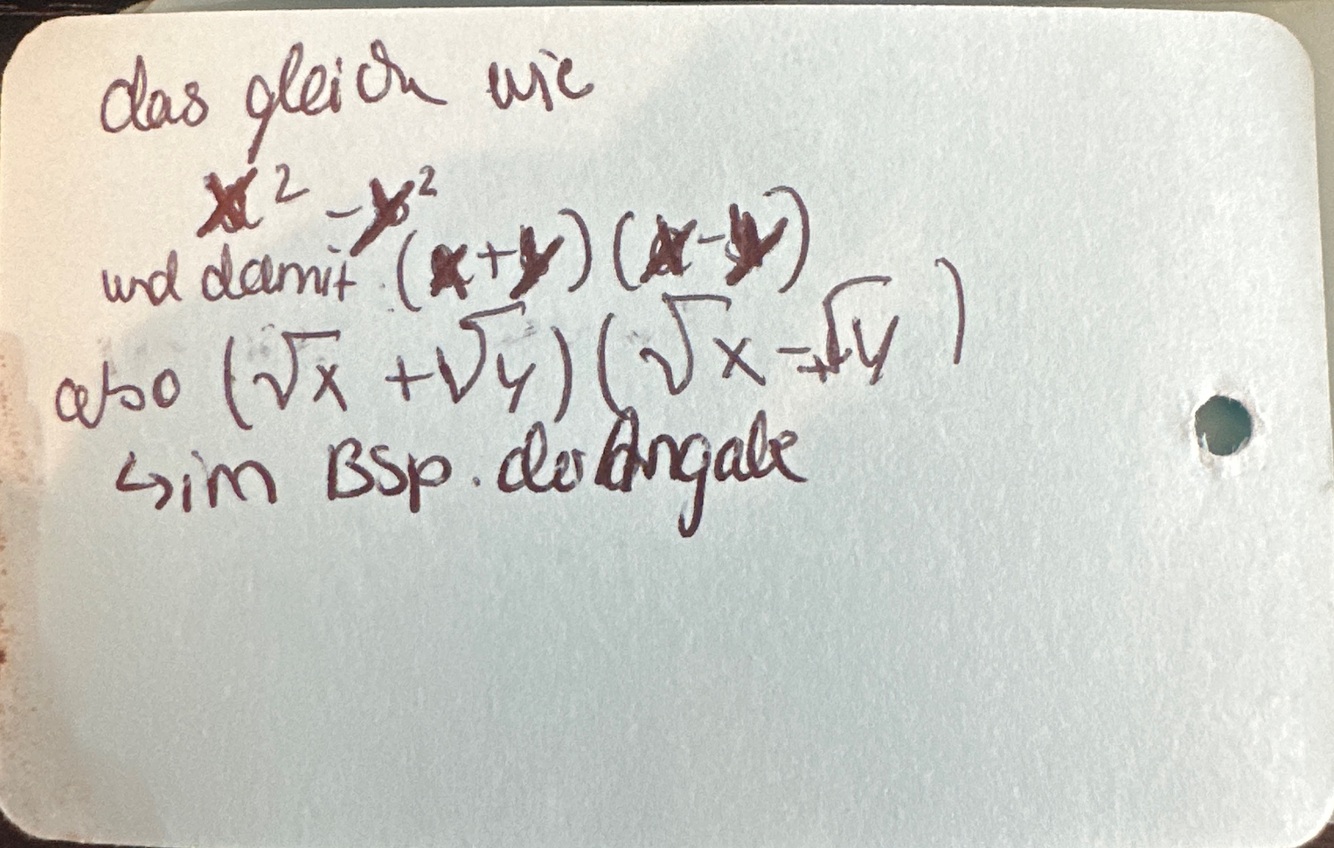 das gleich wie
x² - y²
und damit (x+y)(x-y)
also (√x + √y)(√x - √y)
↳ im Bsp. der Angabe